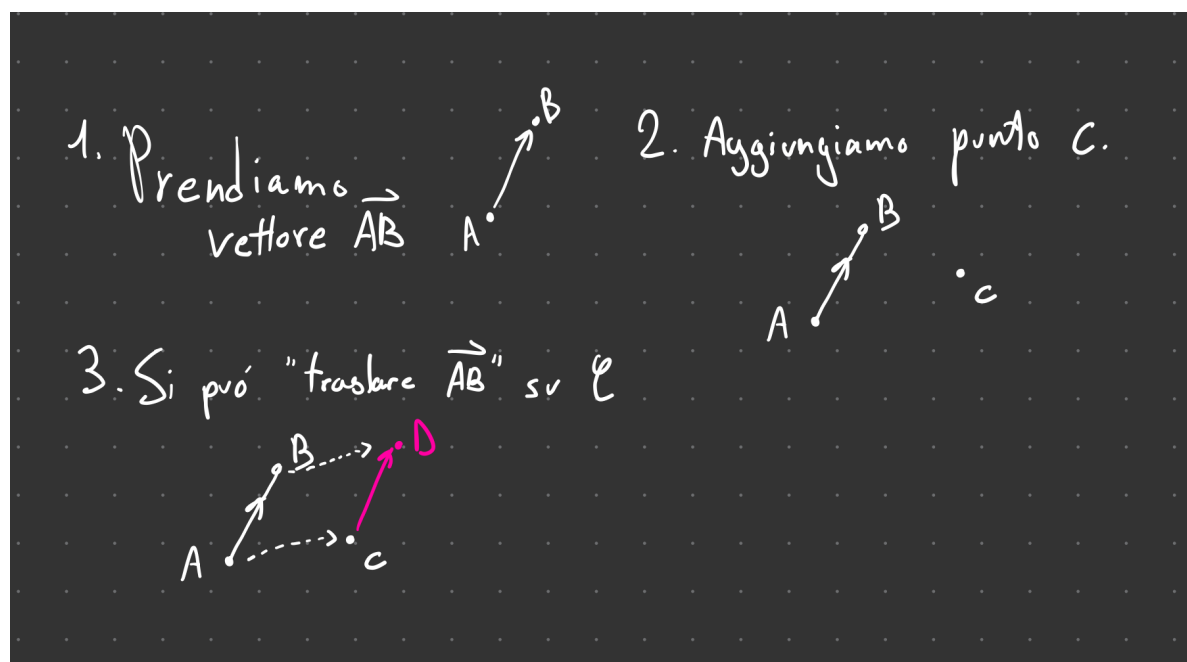 1. Prendiamo
vettore AB
A
B
2. Aggiungiamo punto C.
B
A
C
3. Si puó "traslare AB" su C
B
D
A
C